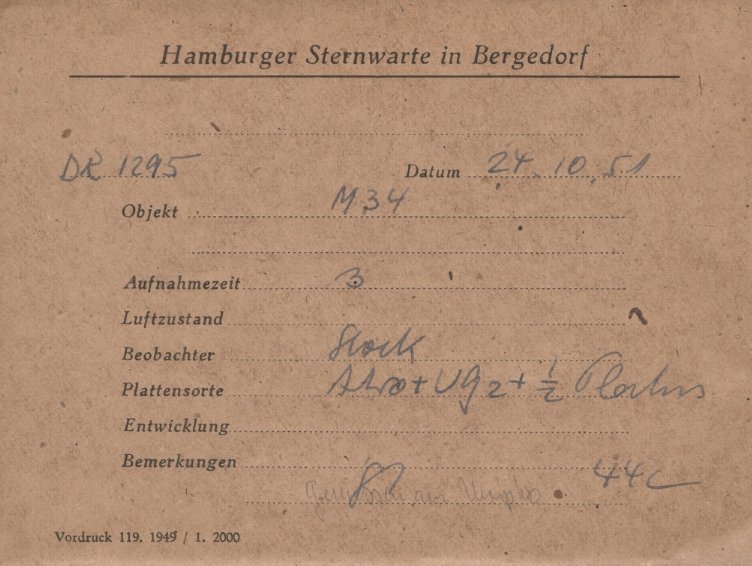 Hamburger Sternwarte in Bergedorf
DR 1295 Datum 24.10.51
Objekt M34
Aufnahmezeit 3
Luftzustand
Beobachter Stock
Plattensorte + UG2 + 1/2
Entwicklung
Bemerkungen 44c
Vordruck 119. 1949 / 1. 2000